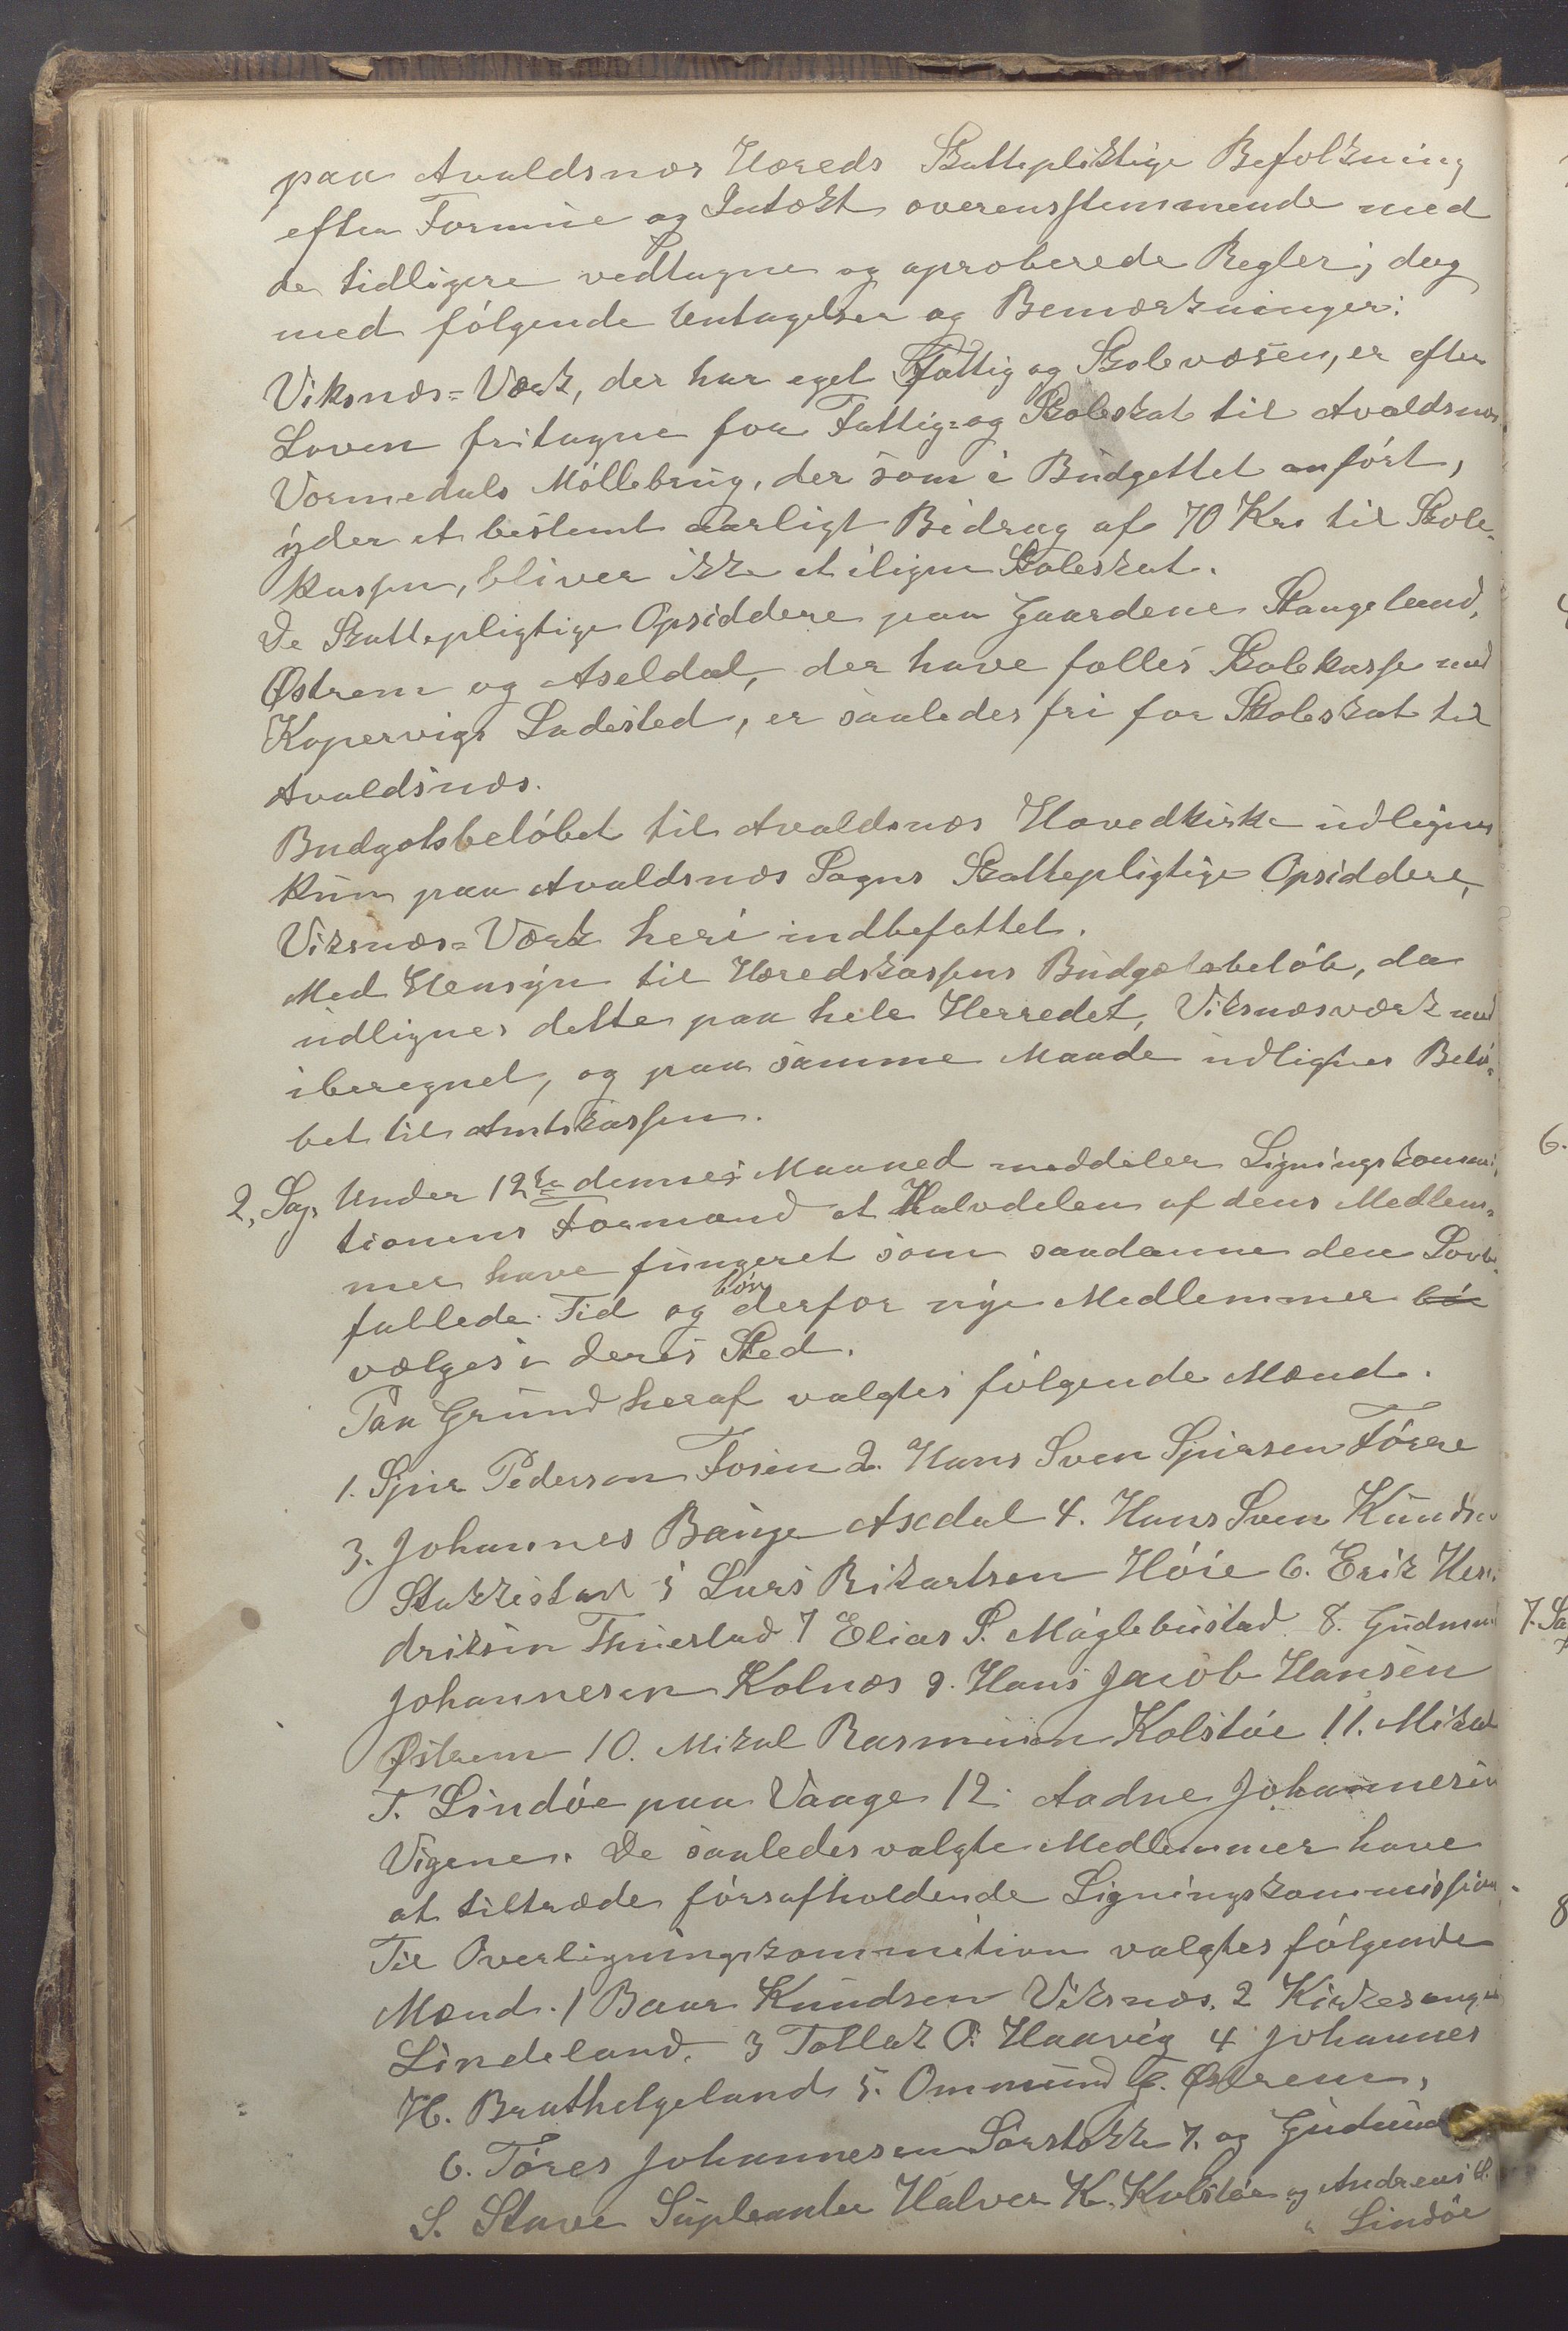 paa Avaldsnæs Hereds Skattepliktige Befolkning
efter Formue og Indtækt overensstemmende med
de tidligere vedtagne og aproberede Regler, dog
med følgende Untagelser og Bemærkninger:
Viksnæs=Værk, der har eget Fattig og Skolevæsen, er efter
Loven fritagne for Fattig= og Skoleskat til Avaldsnæs.
Vormedals Møllebrug, der som i Budgettet anført,
yder et bestemt aarligt Bidrag af 70 Kr. til Skole-
kassen, bliver ikke at iligne Skoleskat.
De Skattepligtige Opsiddere paa Gaardene Stangeland,
Østrem og Aseldal, der have fælles Skolekasse med
Kopervigs Ladested, er saaledes fri for Skoleskat til
Avaldsnæs.
Budgetsbeløbet til Avaldsnæs Hovedkirke udlignes
kun paa Avaldsnæs Sogns Skattepligtige Opsiddere,
Viksnæs=Værk heri indbefattet.
Med Hensyn til Heredskassens Budgetsbeløb, da
udlignes dette paa hele Herredet, Viksnæsværk med
iberegnet, og paa samme Maade udlignes Belø-
bet til Amtskassen.
2, Sag. Under 12te dennes Maaned meddeler Ligningskommi-
tionens Formand at Halvdelen af dens Medlem-
mer have fungeret som saadanne den Lovbe-
fallede Tid og bør derfor nye Medlemmer bør
vælges i deres Sted.
Paa Grund heraf valgtes følgende Mænd.
1. Sjur Pedersen Fosen 2. Hans Sven Sjursen Førre
3. Johannes Bauge Axdal 4. Hans Sven Knudsen
Stakkestad 5 Lars Rikartsen Høie 6. Erik Hen-
driksen Thuestad 7 Elias S. Møglebustad 8. Gudmund
Johannesen Kolnæs 9. Hans Jacob Hansen
Østrem 10. Mikal Rasmusen Kolstøe 11. Mikal
T. Lindøe paa Vaage 12. Aadne Johannesen
Vigene. De saaledes valgte Medlemmer have
at tiltræde førsafholdende Ligningskommission.
Til Overligningskommition valgtes følgende
Mænd. 1 Baar Knudsen Viksnæs. 2 Kirkesanger
Lindeland. 3 Tollak O. Haavig 4 Johannes
H. Brathelgeland 5. Ommund E. Østrem,
6. Tøres Johannesen Sørstokke 7. og Gudmund
S. Stave Supleanter Halver K. Kolstøe og Andreas
Lindøe
6.
7. Sa
8